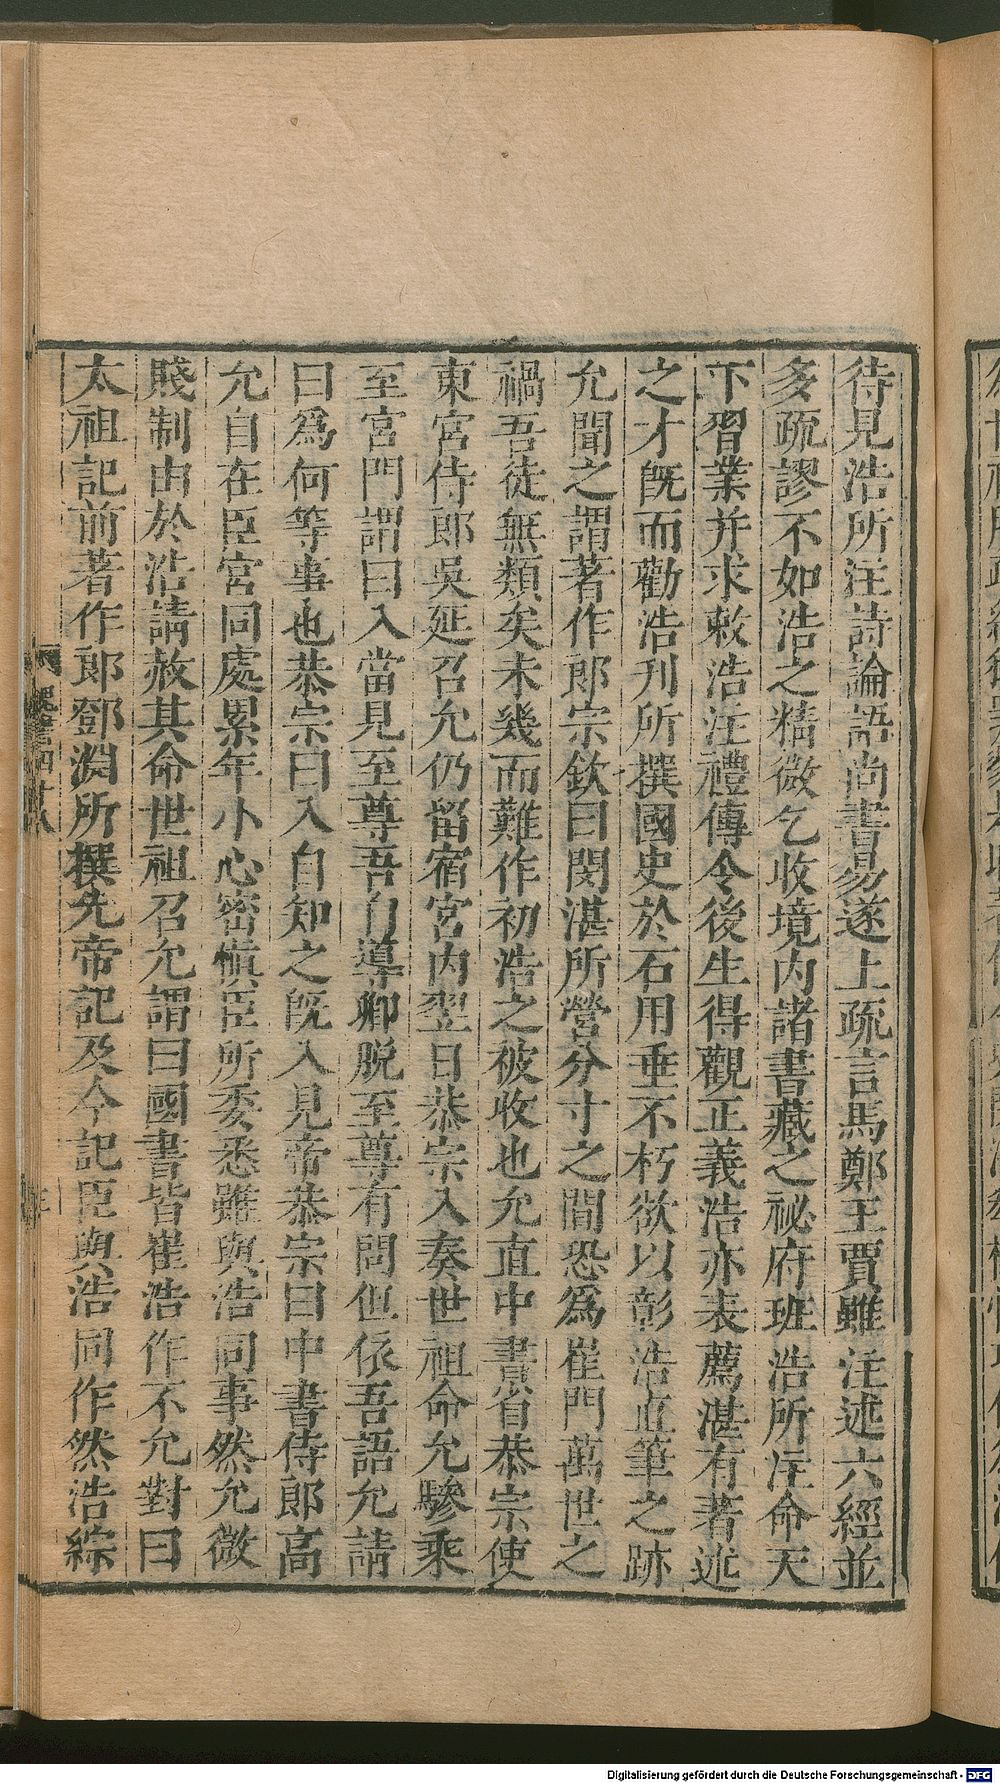 待見浩所注詩論語尚書易遂上疏言馬鄭王賈雖注述六經並
多疏謬不如浩之精微乞收境內諸書藏之祕府班浩所注命天
下習業并求敕浩注禮傳令後生得觀正義浩亦表薦湛有著述
之才既而勸浩刊所撰國史於石用垂不朽欲以彰浩直筆之跡
允聞之謂著作郎宗欽曰閔湛所營分寸之間恐為崔門萬世之
禍吾徒無類矣未幾而難作初浩之被收也允直中書省恭宗使
東宮侍郎吳延召允仍留宿宮內翌日恭宗入奏世祖命允驂乘
至宮門謂曰入當見至尊吾自導卿脫至尊有問但依吾語允請
曰爲何等事也恭宗曰入自知之既入見帝恭宗曰中書侍郎高
允自在臣宮同處累年小心密慎臣所委悉雖與浩同事然允微
賤制由於浩請赦其命世祖召允謂曰國書皆崔浩作不允對曰
太祖記前著作郎鄧淵所撰先帝記及今記臣與浩同作然浩綜
魏書四十八
Digitalisierung gefördert durch die Deutsche Forschungsgemeinschaft - DFG